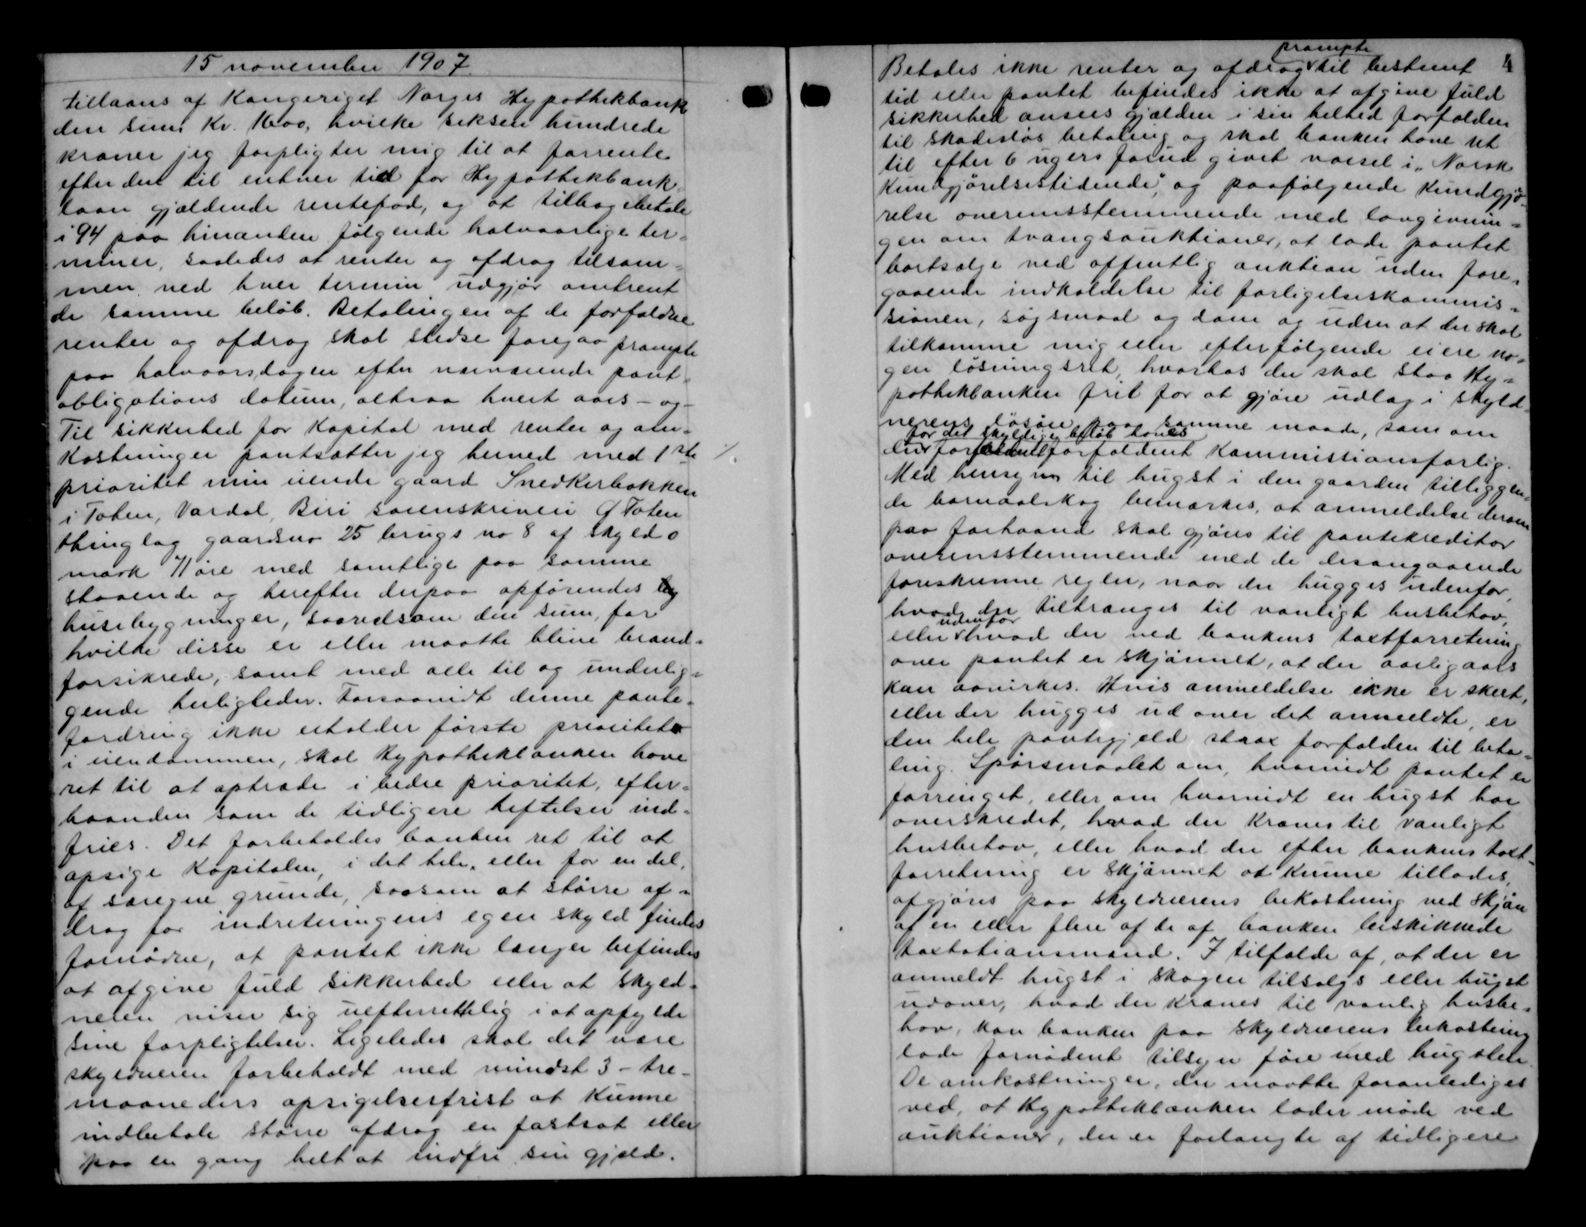 15 november 1907
tillaans af Kongeriget Norges Hypothekbank
den sum Kr. 1600, hvilke seksten hundrede
kroner jeg forpligter mig til at forrente
efter den til enhver tid for Hypothekbank-
laan gjældende rentefod, og at tilbagebetale
i 94 paa hinanden følgende halvaarlige ter-
miner, saaledes at renter og afdrag tilsam-
men ved hver termin udgjør omtrent
de samme beløb. Betalingen af de forfaldne
renter og afdrag skal stedse foregaa prompte
paa halvaarsdagen efter nærværende pant-
obligations datum, altsaa hvert aars – og –
Til sikkerhed for Kapital med renter og om-
kostninger pantsætter jeg herved med 1ste %
prioritet min eiende gaard Snedkerbakken
i Toten, Vardal, Biri sorenskriveri Ø Toten
thinglag gaardsno 25 brugs no 8 af skyld 0
mark 71 øre med samtlige paa samme
staaende og herefter derpaa opførendes
husebygninger, saavelsom den sum, for
hvilke disse er eller maatte blive brand-
forsikrede, samt med alle til og underlig-
gende herligheder. Forsaavidt denne pante-
fordring ikke erholder første prioritet
i eiendommen, skal Hypothekbanken have
ret til at optræde i bedre prioritet, efter-
haanden som de tidligere heftelser ind-
fries. Det forbeholdes banken ret til at
opsige Kapitalen, i det hele, eller for en del,
af særegne grunde, saasom at større af-
drag for indretningens egen skyld findes
fornødne, at pantet ikke længer befindes
at afgive fuld sikkerhed eller at skyld-
neren viser sig uefterrettelig i at opfylde
sine forpligtelser. Ligeledes skal det være
skyldneren forbeholdt med mindst 3 – tre –
maaneders opsigelsesfrist at kunne
indbetale større afdrag en fastsat eller
paa en gang helt at indfri sin gjæld.
4
prompte
Betales ikke renter og afdrag til bestemt
tid eller pantet befindes ikke at afgive fuld
sikkerhed ansees gjælden i sin helhed forfalden
til skadesløs betaling og skal banken have ret
til efter 6 ugers forud givet varsel i „Norsk
Kundgjørelsestidende", og paafølgende kundgjø-
relse overensstemmende med lovgivnin-
gen om tvangsauktioner, at lade pantet
bortsælge ved offentlig auktion uden fore-
gaaende indkaldelse til forligelseskommis-
sionen, søgsmaal og dom og uden at der skal
tilkomme mig eller efterfølgende eiere no-
gen løsningsret, hvorhos der skal staa Hy-
pothekbanken frit for at gjøre udlæg i skyld-
nerens løsøre paa samme maade, som om
for det skyldige beløb haves
der forfaldent Kommissionsforlig.
Med hensyn til hugst i den gaarden tilliggen-
de barnaalskog bemærkes, at anmeldelse derom
paa forhaand skal gjøres til pantekreditor
overensstemmende med de desangaaende
foreskrevne regler, naar der hugges udenfor,
hvad der tiltrænges til vanligt husbehov,
udenfor
eller hvad der ved bankens taxtforretning
over pantet er skjønnet, at der aarligaars
kan aavirkes. Hvis anmeldelse ikke er skeet,
eller der hugges ud over det anmeldte, er
den hele pantegjæld strax forfalden til beta-
ling. Spørsmaalet om, hvorvidt pantet er
forringet, eller om hvorvidt en hugst har
overskredet, hvad der kræves til vanligt
husbehov, eller hvad der efter bankens taxt-
forretning er skjønnet at kunne tillades,
afgjøres paa skyldnerens bekostning ved skjøn
af en eller flere af de af banken beskikkede
taxtationsmænd. I tilfælde af, at der er
anmeldt hugst i skogen tilsalgs eller hugst
udover, hvad der kræves til vanlig husbe-
hov, kan banken paa skyldnerens bekostning
lade fornødent tilsyn føre med hugsten.
De omkostninger, der maatte foranlediges
ved, at Hypothekbanken lader møde ved
auktioner, der er forlangte af tidligere